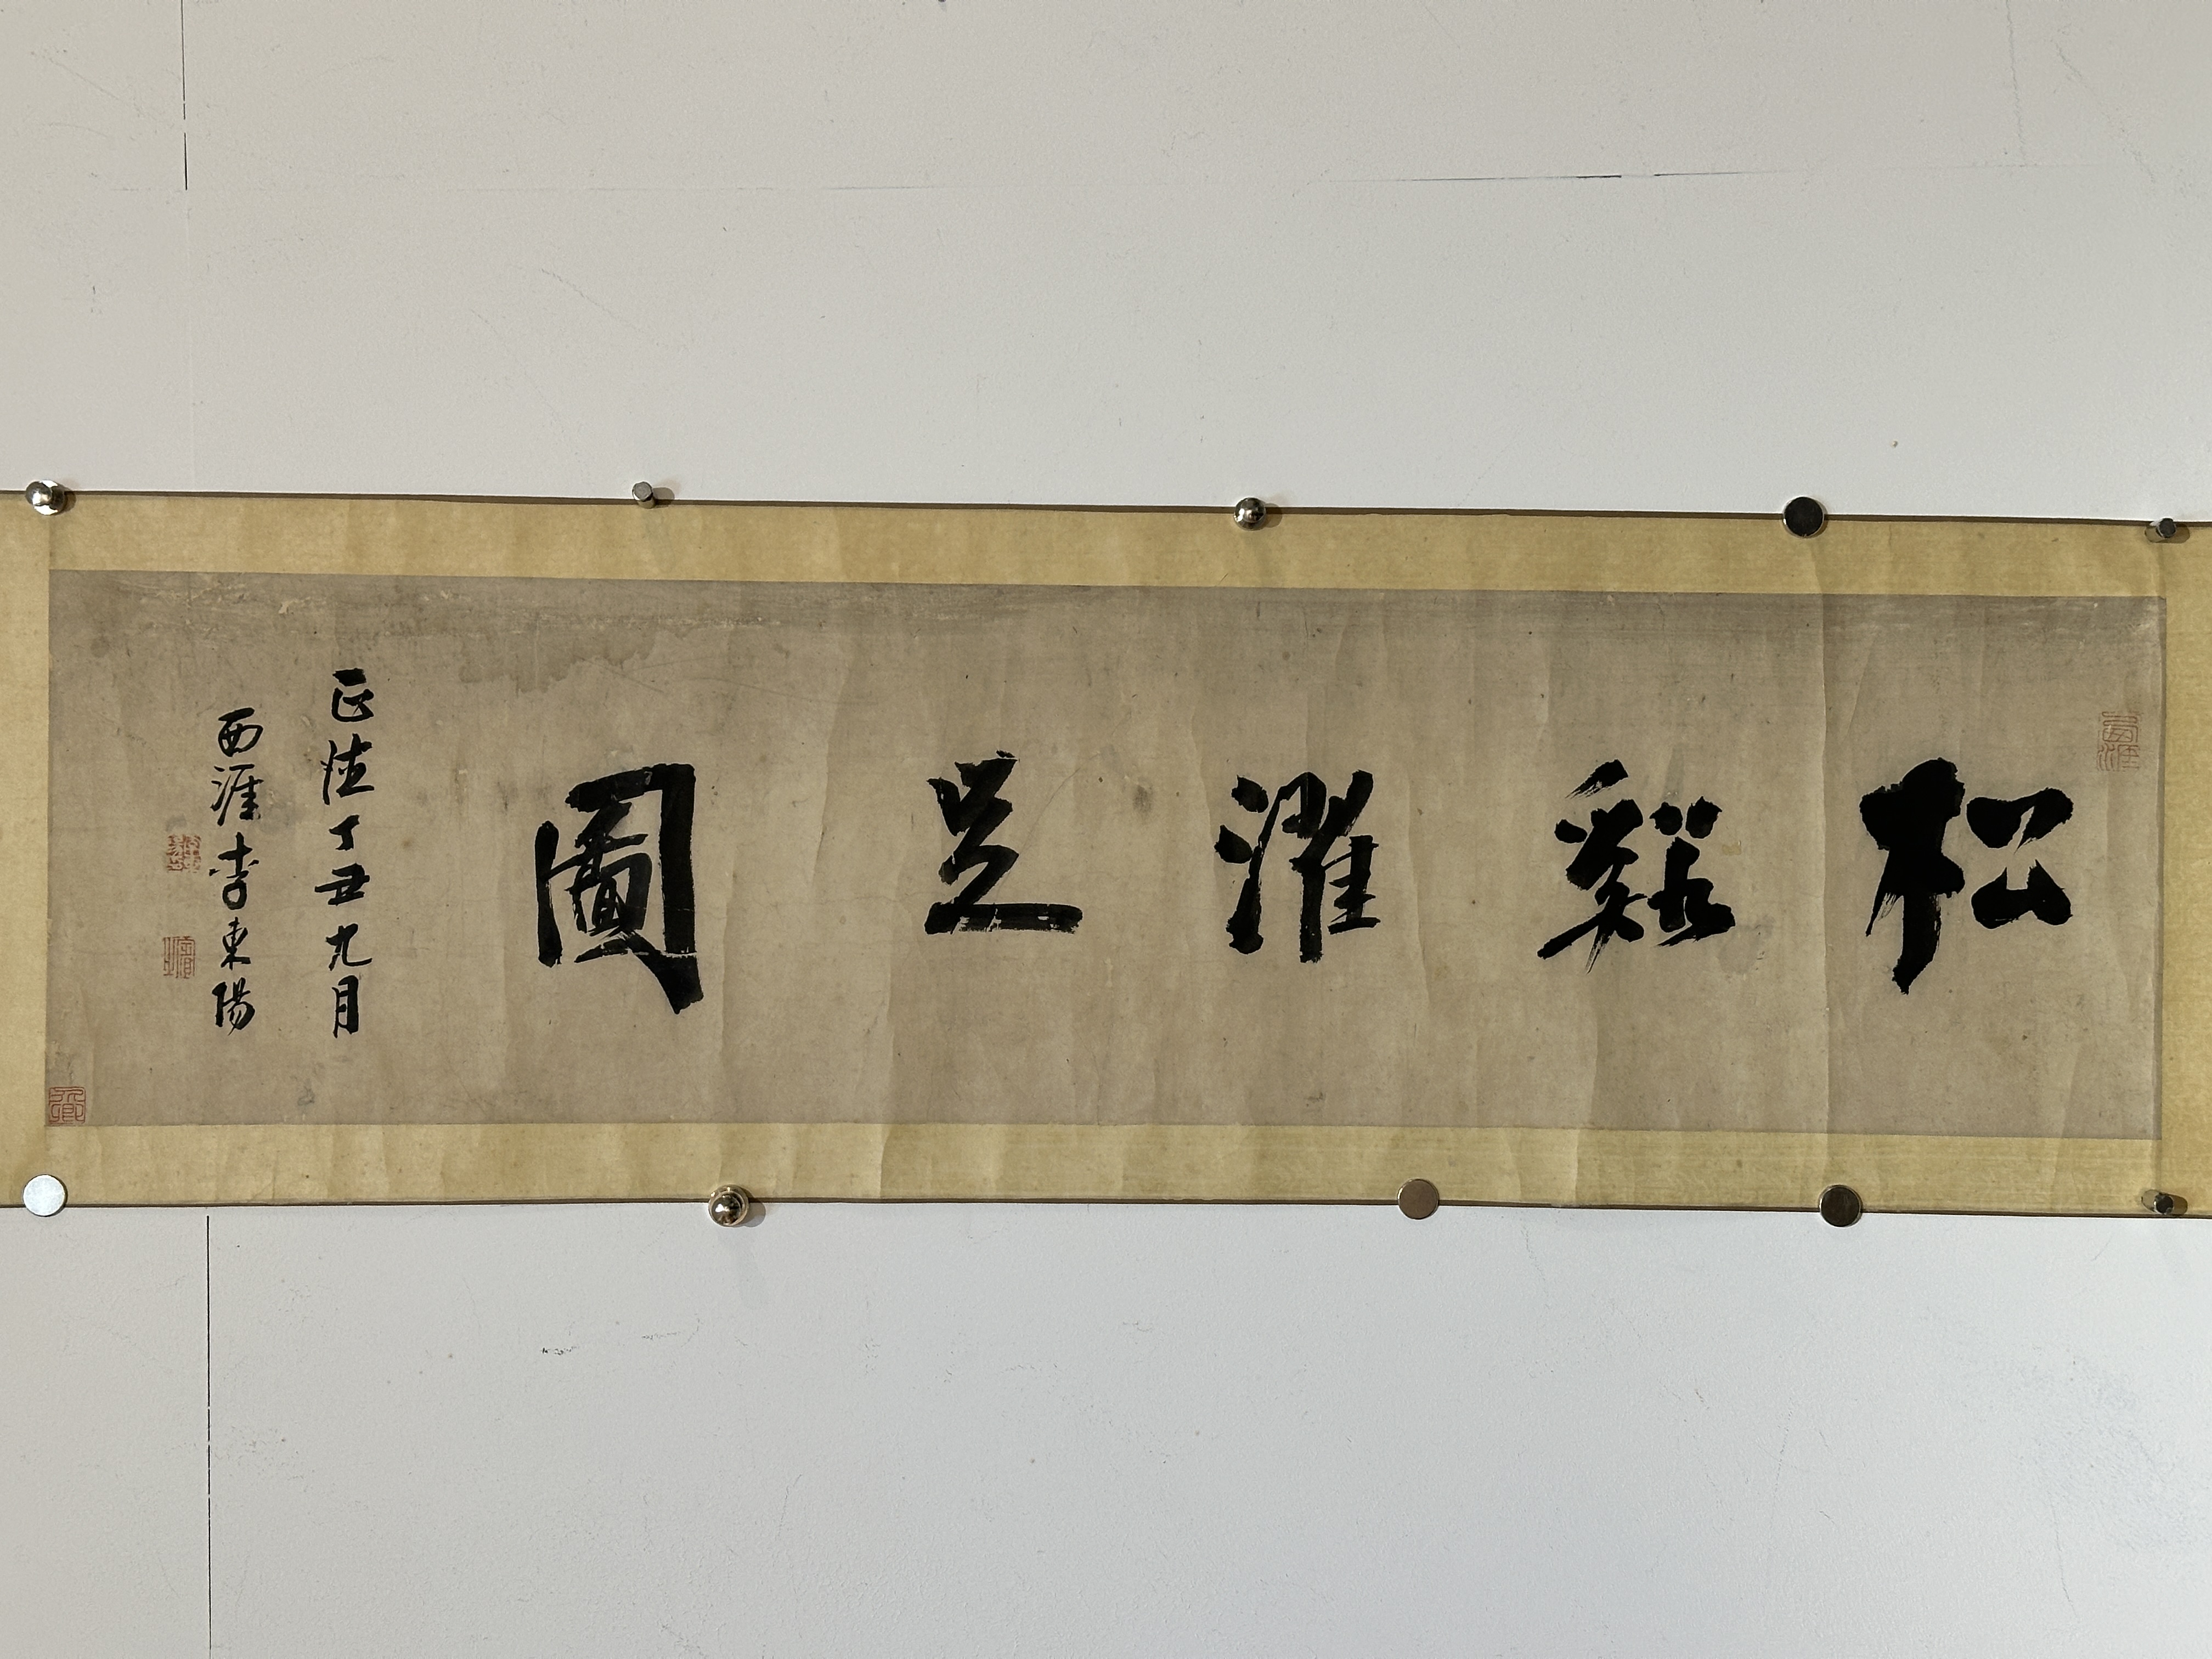 松谿濯足圖
正德丁丑九月
西涯李東陽
西涯